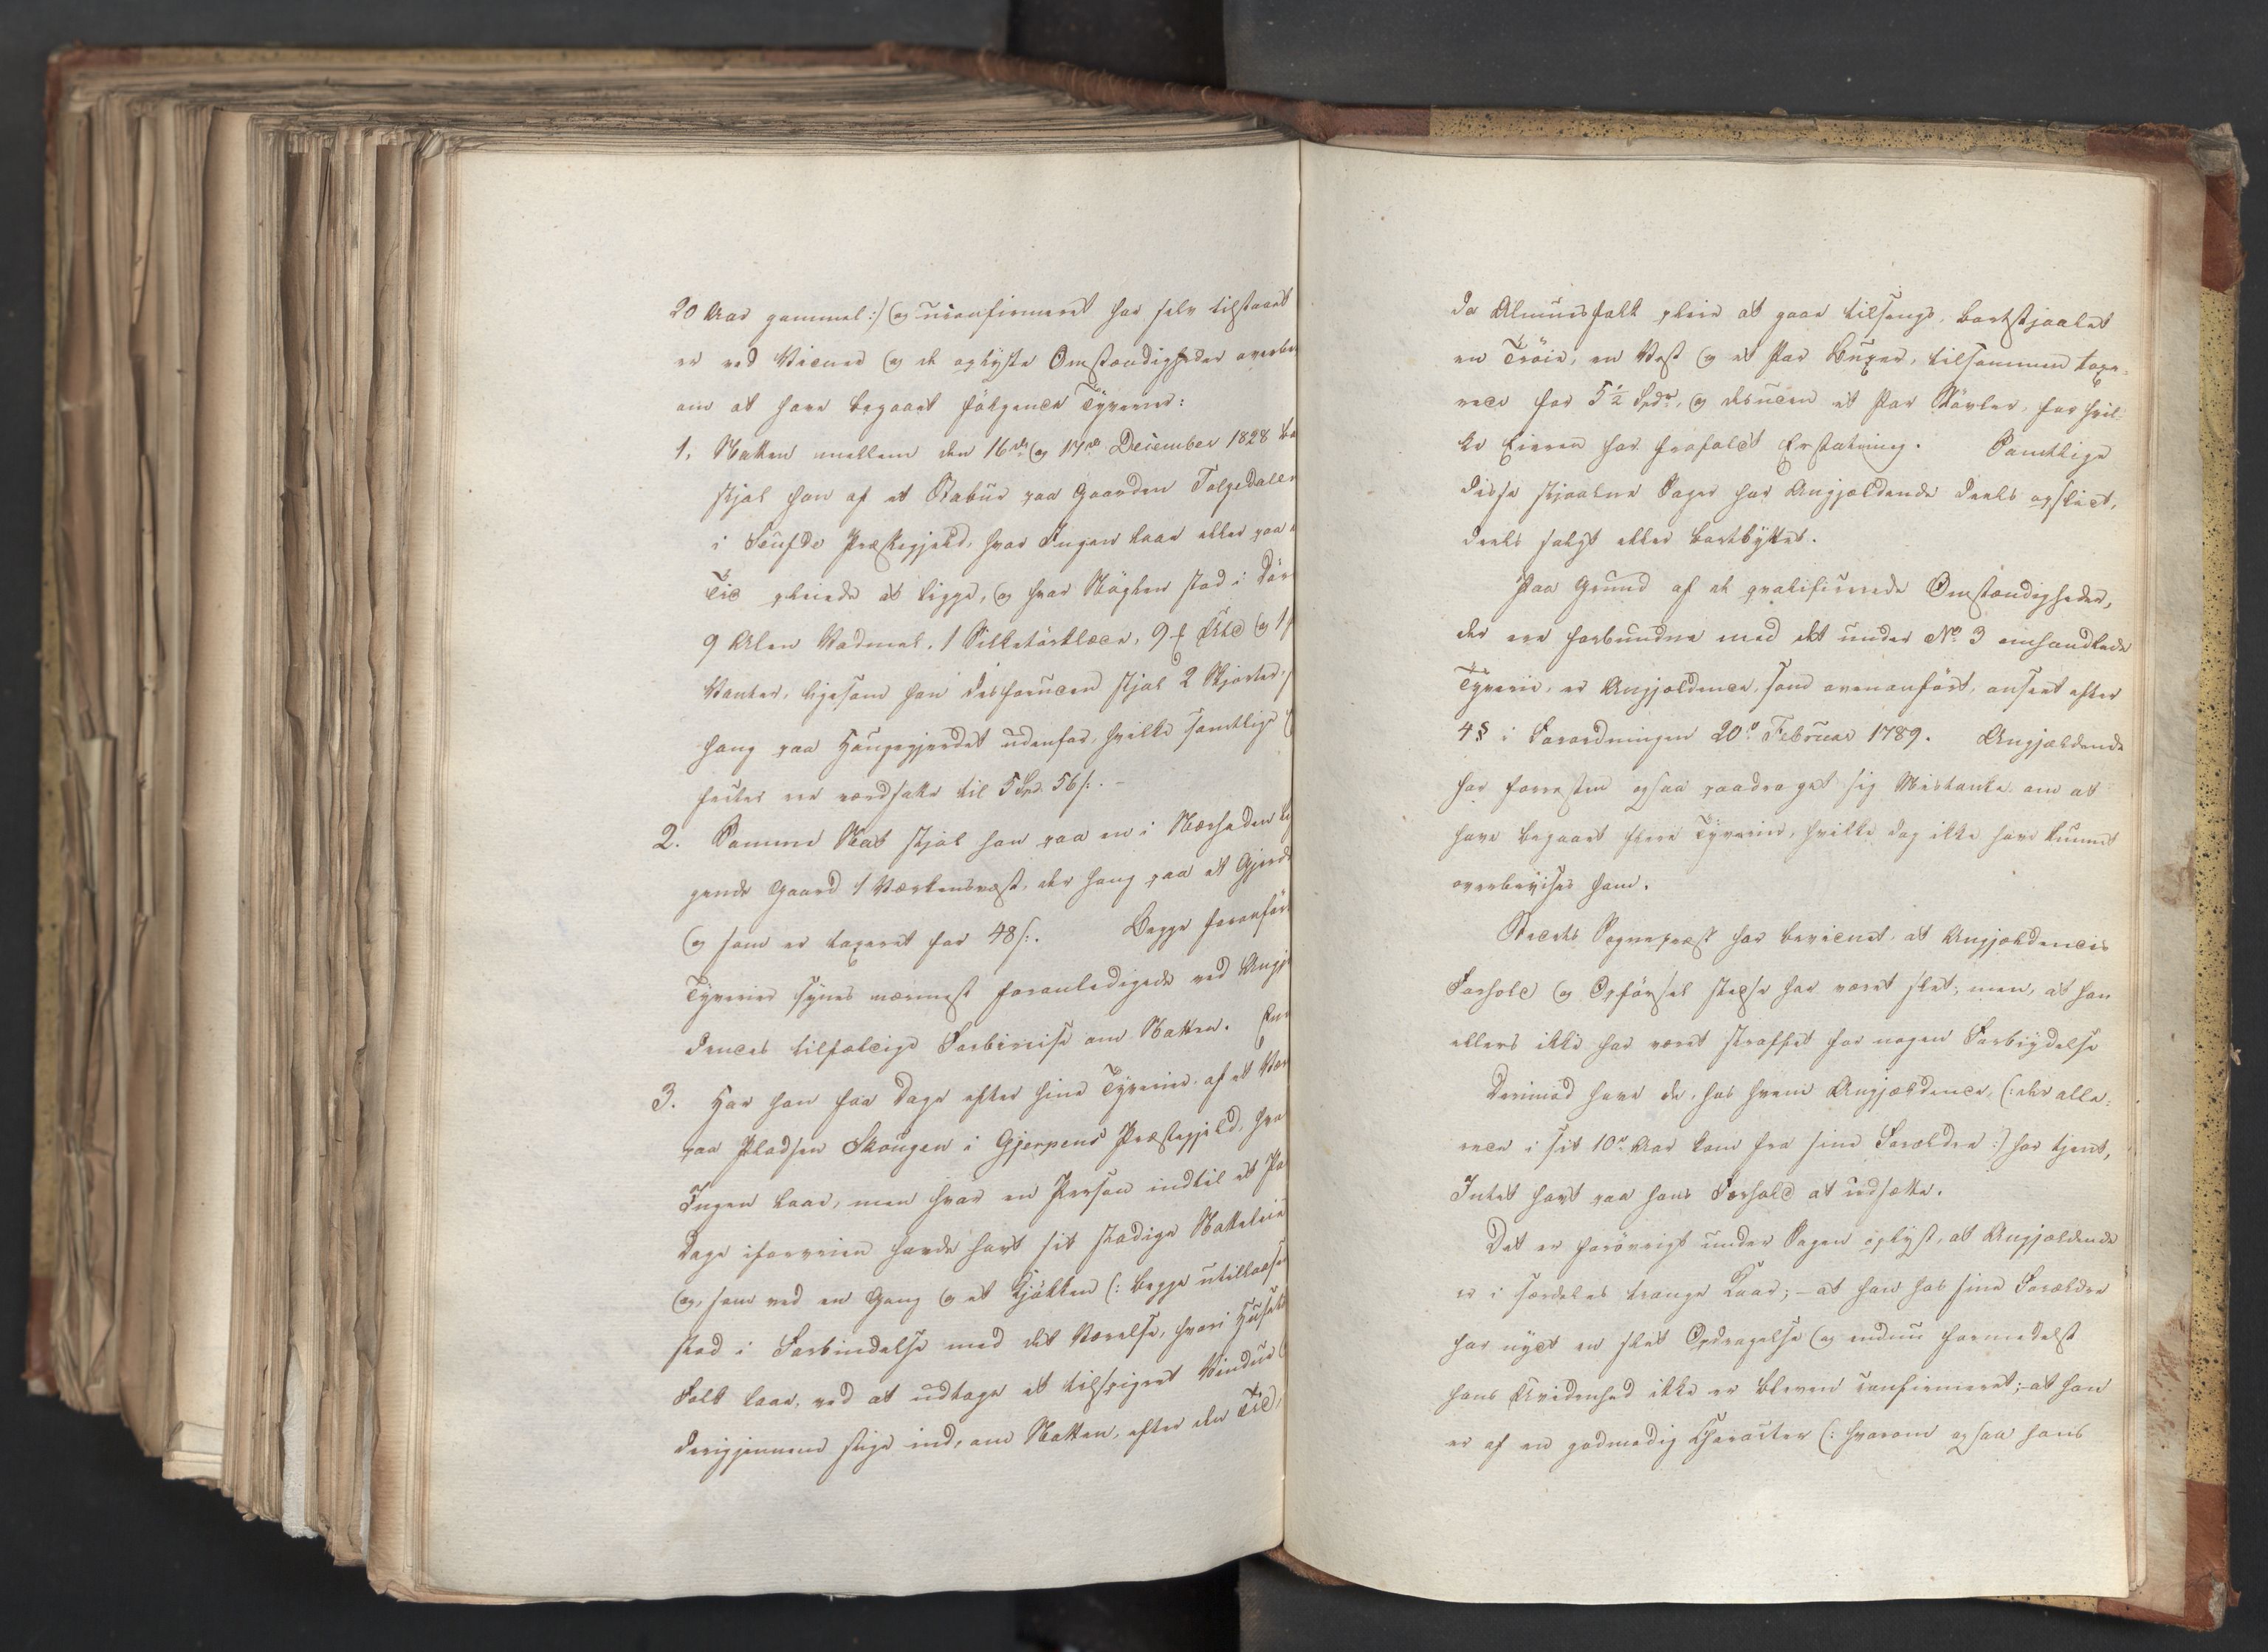 20 Aar gammel :/ og uconfirmeret har selv tilstaaet
er ved Vidner og de oplyste Omstændigheder overbe
om at have begaaet følgende Tyverier:
1. Natten mellem den 16de og 17de December 1828 bo
stjal han af et Stabur paa Gaarden Folgedalen
i Soufde Præstegjeld, hvor Ingen laae eller paa
Tid pleiede at ligge, og hvor Nøglen stod i Dør
9 Alen Vadmel, 1 Silketørklæde, 9 ℔ Uld og 1 p
Vanter, ligesom han desforuden stjal 2 Skjorter,
hang paa Haugegjerdet udenfor, hvilke samtlige
fecter ere værdsatte til 5 Spd. 56 s:. –
2. Samme Nat stjal han paa en i Nærheden lig
gende Gaard 1 Værkensvest, der hang paa et Gjerde
og som er taxeret for 48 s:. Begge foranfør
Tyverier synes nærmest foranledigede ved Angjæ
dendes tilfældige Forbireise om Natten. End
3. Har han faa Dage efter hine Tyverier af et Vær
paa Pladsen Skougen i Gjerpens Præstegjeld, hvo
Ingen laae, men hvor en Person indtil et Pa
Dage iforveien havde havt sit stadige Natteleie
og, som ved en Gang og et Kjøkken (: begge utillaaset
stod i Forbindelse med det Værelse, hvori Husets
Folk laae, ved at udtage et tilspigret Vindue
derigjennem stige ind, om Natten, efter den Tid,
da Almuesfolk pleie at gaae tilsengs, bortstjaalet
en Trøie, en Vest og et Par Buxer, tilsammen taxe-
rede for 5½ Spdr, og desuden et Par Støvler, for hvil-
ke Eieren har frafaldt Erstatning. Samtlige
disse stjaalne Sager har Angjældende deels opslidt,
deels solgt eller bortbyttet.
Paa Grund af de qvalificerede Omstændigheder,
der ere forbundne med det under No 3 omhandlede
Tyverie, er Angjældende, som ovenanført, anseet efter
4 § i Forordningen 20de Februar 1789. Angjældende
har forresten ogsaa paadraget sig Mistanke om at
have begaaet flere Tyverier, hvilke dog ikke have kunnet
overbevises ham.
Stedets Sognepræst har bevidnet, at Angjældendes
Forhold og Opførsel stedse har været slet; men, at han
ellers ikke har været straffet for nogen Forbrydelse
Derimod have de, hos hvem Angjældende, (: der alle-
rede i sit 10de Aar kom fra sine Forældre :) har tjent,
Intet havt paa hans Forhold at udsætte.
Det er forøvrigt under Sagen oplyst, at Angjældende
er i særdeles trange Kaar; – at han hos sine Forældre
har nydt en slet Opdragelse og endnu formedelst
hans Uvidenhed ikke er bleven confirmeret; – at han
er af en godmodig Character (: hvorom ogsaa hans